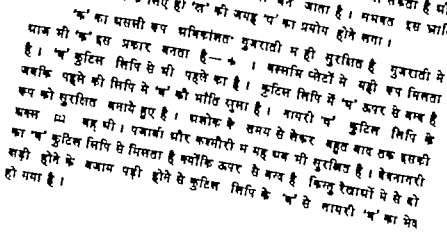 बन जाता है । सम्भवत इस भ्रान्ति
लिए ही 'ख' की जगह 'ष' का प्रयोग होने लगा ।
'क' का असली रूप अधिकांशतः गुजराती म ही सुरक्षित है गुजराती मे
आज भी 'क' इस प्रकार बनता है— । बल्लभि प्लेटों मे यही रूप मिलता
है । 'ष' कुटिल लिपि से भी पहले का है । कुटिल लिपि में 'ष' ऊपर से बन्द है
जबकि पहले की लिपि मे 'ष' की भाँति खुला है । नागरी 'ष' कुटिल लिपि के
रूप को सुरक्षित बनाये हुए है । अशोक के समय से लेकर बहुत बाद तक इसकी
शक्ल यह थी । पंजाबी और कश्मीरी म यह अब भी सुरक्षित है । देवनागरी
का 'ष' कुटिल लिपि से मिलता है क्योंकि ऊपर से बन्द है किन्तु रेखाओं मे से दो
खड़ी होने के बजाय पड़ी होने से कुटिल लिपि के 'ष' से नागरी 'ष' का भेद
हो गया है ।